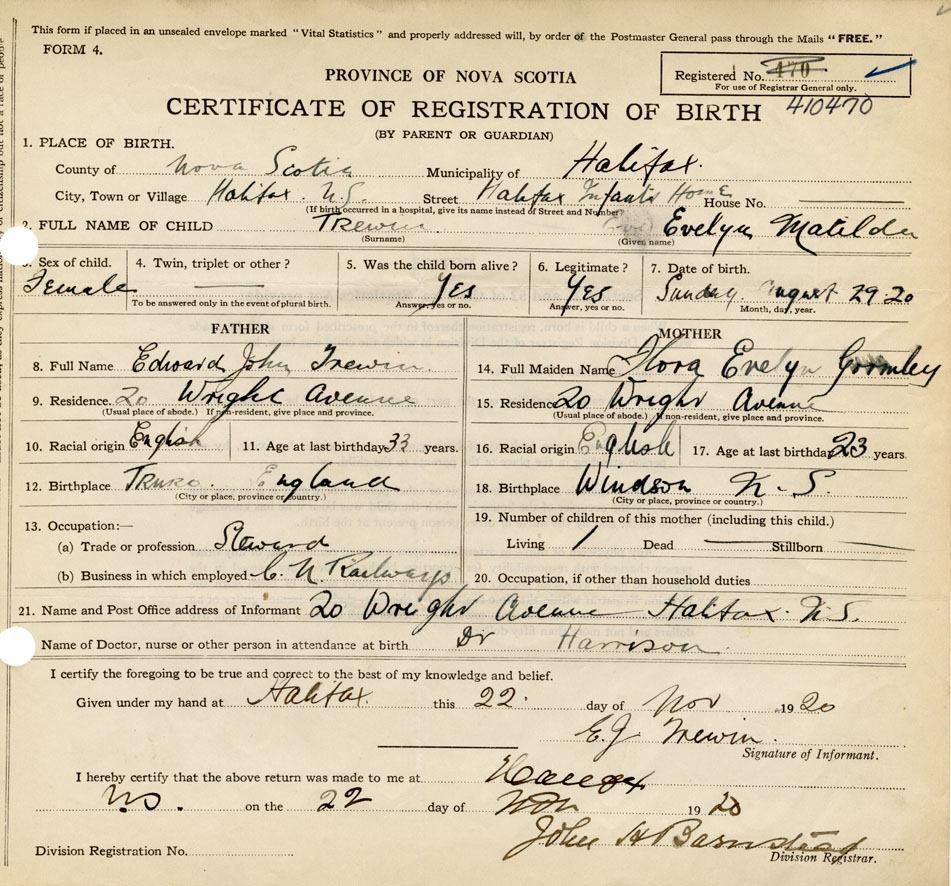 This form if placed in an unsealed envelope marked "Vital Statistics" and properly addressed will, by order of the Postmaster General pass through the Mails "FREE."
FORM 4.
PROVINCE OF NOVA SCOTIA
Registered No. 170
For use of Registrar General only.
CERTIFICATE OF REGISTRATION OF BIRTH 410470
(BY PARENT OR GUARDIAN)
1. PLACE OF BIRTH.
County of Nova Scotia Municipality of Halifax.
City, Town or Village Halifax. N.S. Street Halifax Infants Home House No.
(If birth occurred in a hospital, give its name instead of Street and Number?
2. FULL NAME OF CHILD Trewin Evelyn Matilda
(Surname) (Given name)
3. Sex of child. 4. Twin, triplet or other? 5. Was the child born alive? 6. Legitimate? 7. Date of birth.
Female Yes Yes Sunday. August 29.20
To be answered only in the event of plural birth. Answer, yes or no. Answer, yes or no. Month, day, year.
FATHER
8. Full Name Edward John Trewin.
9. Residence 20 Wright Avenue
(Usual place of abode.) If non-resident, give place and province.
10. Racial origin English 11. Age at last birthday 33 years.
12. Birthplace Truro. England
(City or place, province or country.)
13. Occupation:—
(a) Trade or profession Steward
(b) Business in which employed C. N. Railways
MOTHER
14. Full Maiden Name Flora Evelyn Gormley
15. Residence 20 Wright Avenue
(Usual place of abode.) If non-resident, give place and province.
16. Racial origin English 17. Age at last birthday 23 years.
18. Birthplace Windsor N. S.
(City or place, province or country.)
19. Number of children of this mother (including this child.)
Living 1 Dead Stillborn
20. Occupation, if other than household duties
21. Name and Post Office address of Informant 20 Wright Avenue Halifax. N.S.
Name of Doctor, nurse or other person in attendance at birth Dr Harrison.
I certify the foregoing to be true and correct to the best of my knowledge and belief.
Given under my hand at Halifax. this 22. day of Nov 1920
E.J Trewin.
Signature of Informant.
I hereby certify that the above return was made to me at Halifax
N.S. on the 22 day of Nov 1920
John H Barnstead
Division Registrar.
Division Registration No.